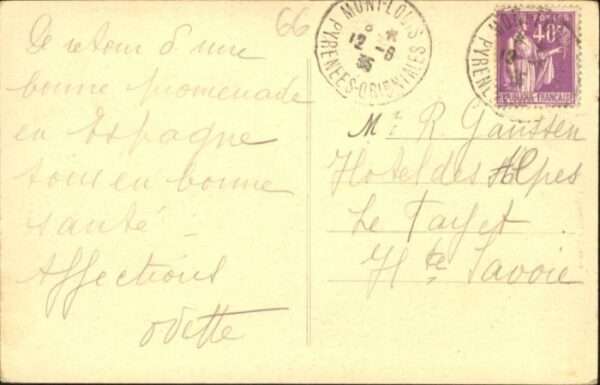 66
De retour d'une
bonne promenade
en Espagne
tous en bonne
santé –
Affections
Odette
MONT-LOUIS
12 -8
35
PYRENEES-ORIENTALES
POSTES
40c
REPUBLIQUE FRANÇAISE
Mr R. Ganssen
Hotel des Alpes
Le Fayet
Hte Savoie